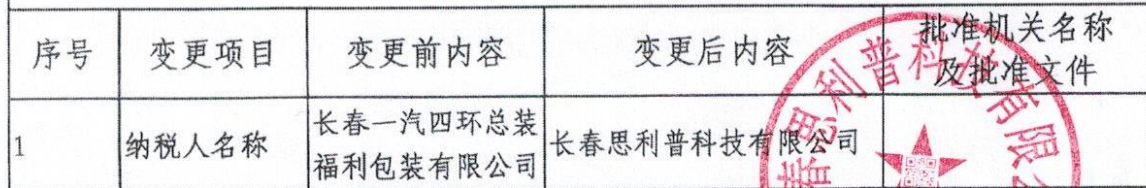 序号 变更项目 变更前内容 变更后内容 批准机关名称
及批准文件
1 纳税人名称 长春一汽四环总装
福利包装有限公司 长春思利普科技有限公司
春思利普科技有限